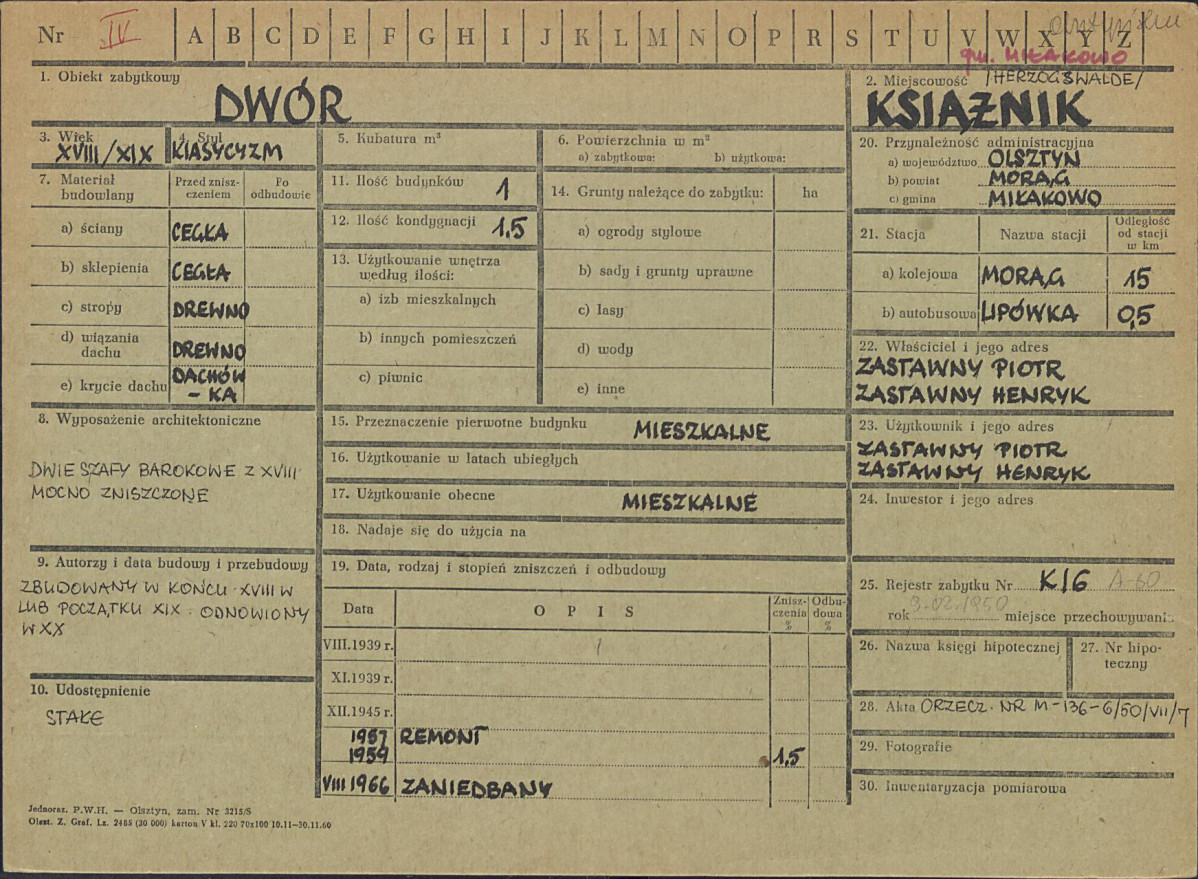 Nr IV A B C D E F G H I J K L M N O P R S T U V W X Y Z
gm. MIŁAKOWO
1. Obiekt zabytkowy
DWÓR
2. Miejscowość /HERZOGSWALDE/
KSIĄŻNIK
3. Wiek
XVIII/XIX
4. Styl
KLASYCYZM
5. Kubatura m³
6. Powierzchnia w m²
a) zabytkowa: b) użytkowa:
7. Materiał budowlany
Przed zniszczeniem
Po odbudowie
a) ściany CEGŁA
b) sklepienia CEGŁA
c) stropy DREWNO
d) wiązania dachu DREWNO
e) krycie dachu DACHÓW
- KA
8. Wyposażenie architektoniczne
DWIE SZAFY BAROKOWE Z XVIII
MOCNO ZNISZCZONE
9. Autorzy i data budowy i przebudowy
ZBUDOWANY W KOŃCU XVIII W
LUB POCZĄTKU XIX. ODNOWIONY
W XX
10. Udostępnienie
STAŁE
11. Ilość budynków 1
12. Ilość kondygnacji 1.5
13. Użytkowanie wnętrza
według ilości:
a) izb mieszkalnych
b) innych pomieszczeń
c) piwnic
14. Grunty należące do zabytku: ha
a) ogrody stylowe
b) sady i grunty uprawne
c) lasy
d) wody
e) inne
15. Przeznaczenie pierwotne budynku MIESZKALNE
16. Użytkowanie w latach ubiegłych
17. Użytkowanie obecne MIESZKALNE
18. Nadaje się do użycia na
19. Data, rodzaj i stopień zniszczeń i odbudowy
Data OPIS Zniszczenia % Odbudowa %
VIII.1939 r.
XI.1939 r.
XII.1945 r.
1957 REMONT
1959 1,5
VIII 1966 ZANIEDBANY
20. Przynależność administracyjna
a) województwo OLSZTYN
b) powiat MORĄG
c) gmina MIŁAKOWO
21. Stacja Nazwa stacji Odległość od stacji w km
a) kolejowa MORĄG 15
b) autobusowa LIPÓWKA 0,5
22. Właściciel i jego adres
ZASTAWNY PIOTR
ZASTAWNY HENRYK
23. Użytkownik i jego adres
ZASTAWNY PIOTR
ZASTAWNY HENRYK
24. Inwestor i jego adres
25. Rejestr zabytku Nr K/6 A-60
rok 3.02.1950 miejsce przechowywania:
26. Nazwa księgi hipotecznej
27. Nr hipoteczny
28. Akta ORZECZ. NR M-136-6/50/VII/7
29. Fotografie
30. Inwentaryzacja pomiarowa
Jednoraz. P.W.H. — Olsztyn, zam. Nr 3215/S
Olszt. Z. Graf. Lz. 2485 (30 000) karton V kl. 220 70x100 10.11—30.11.60